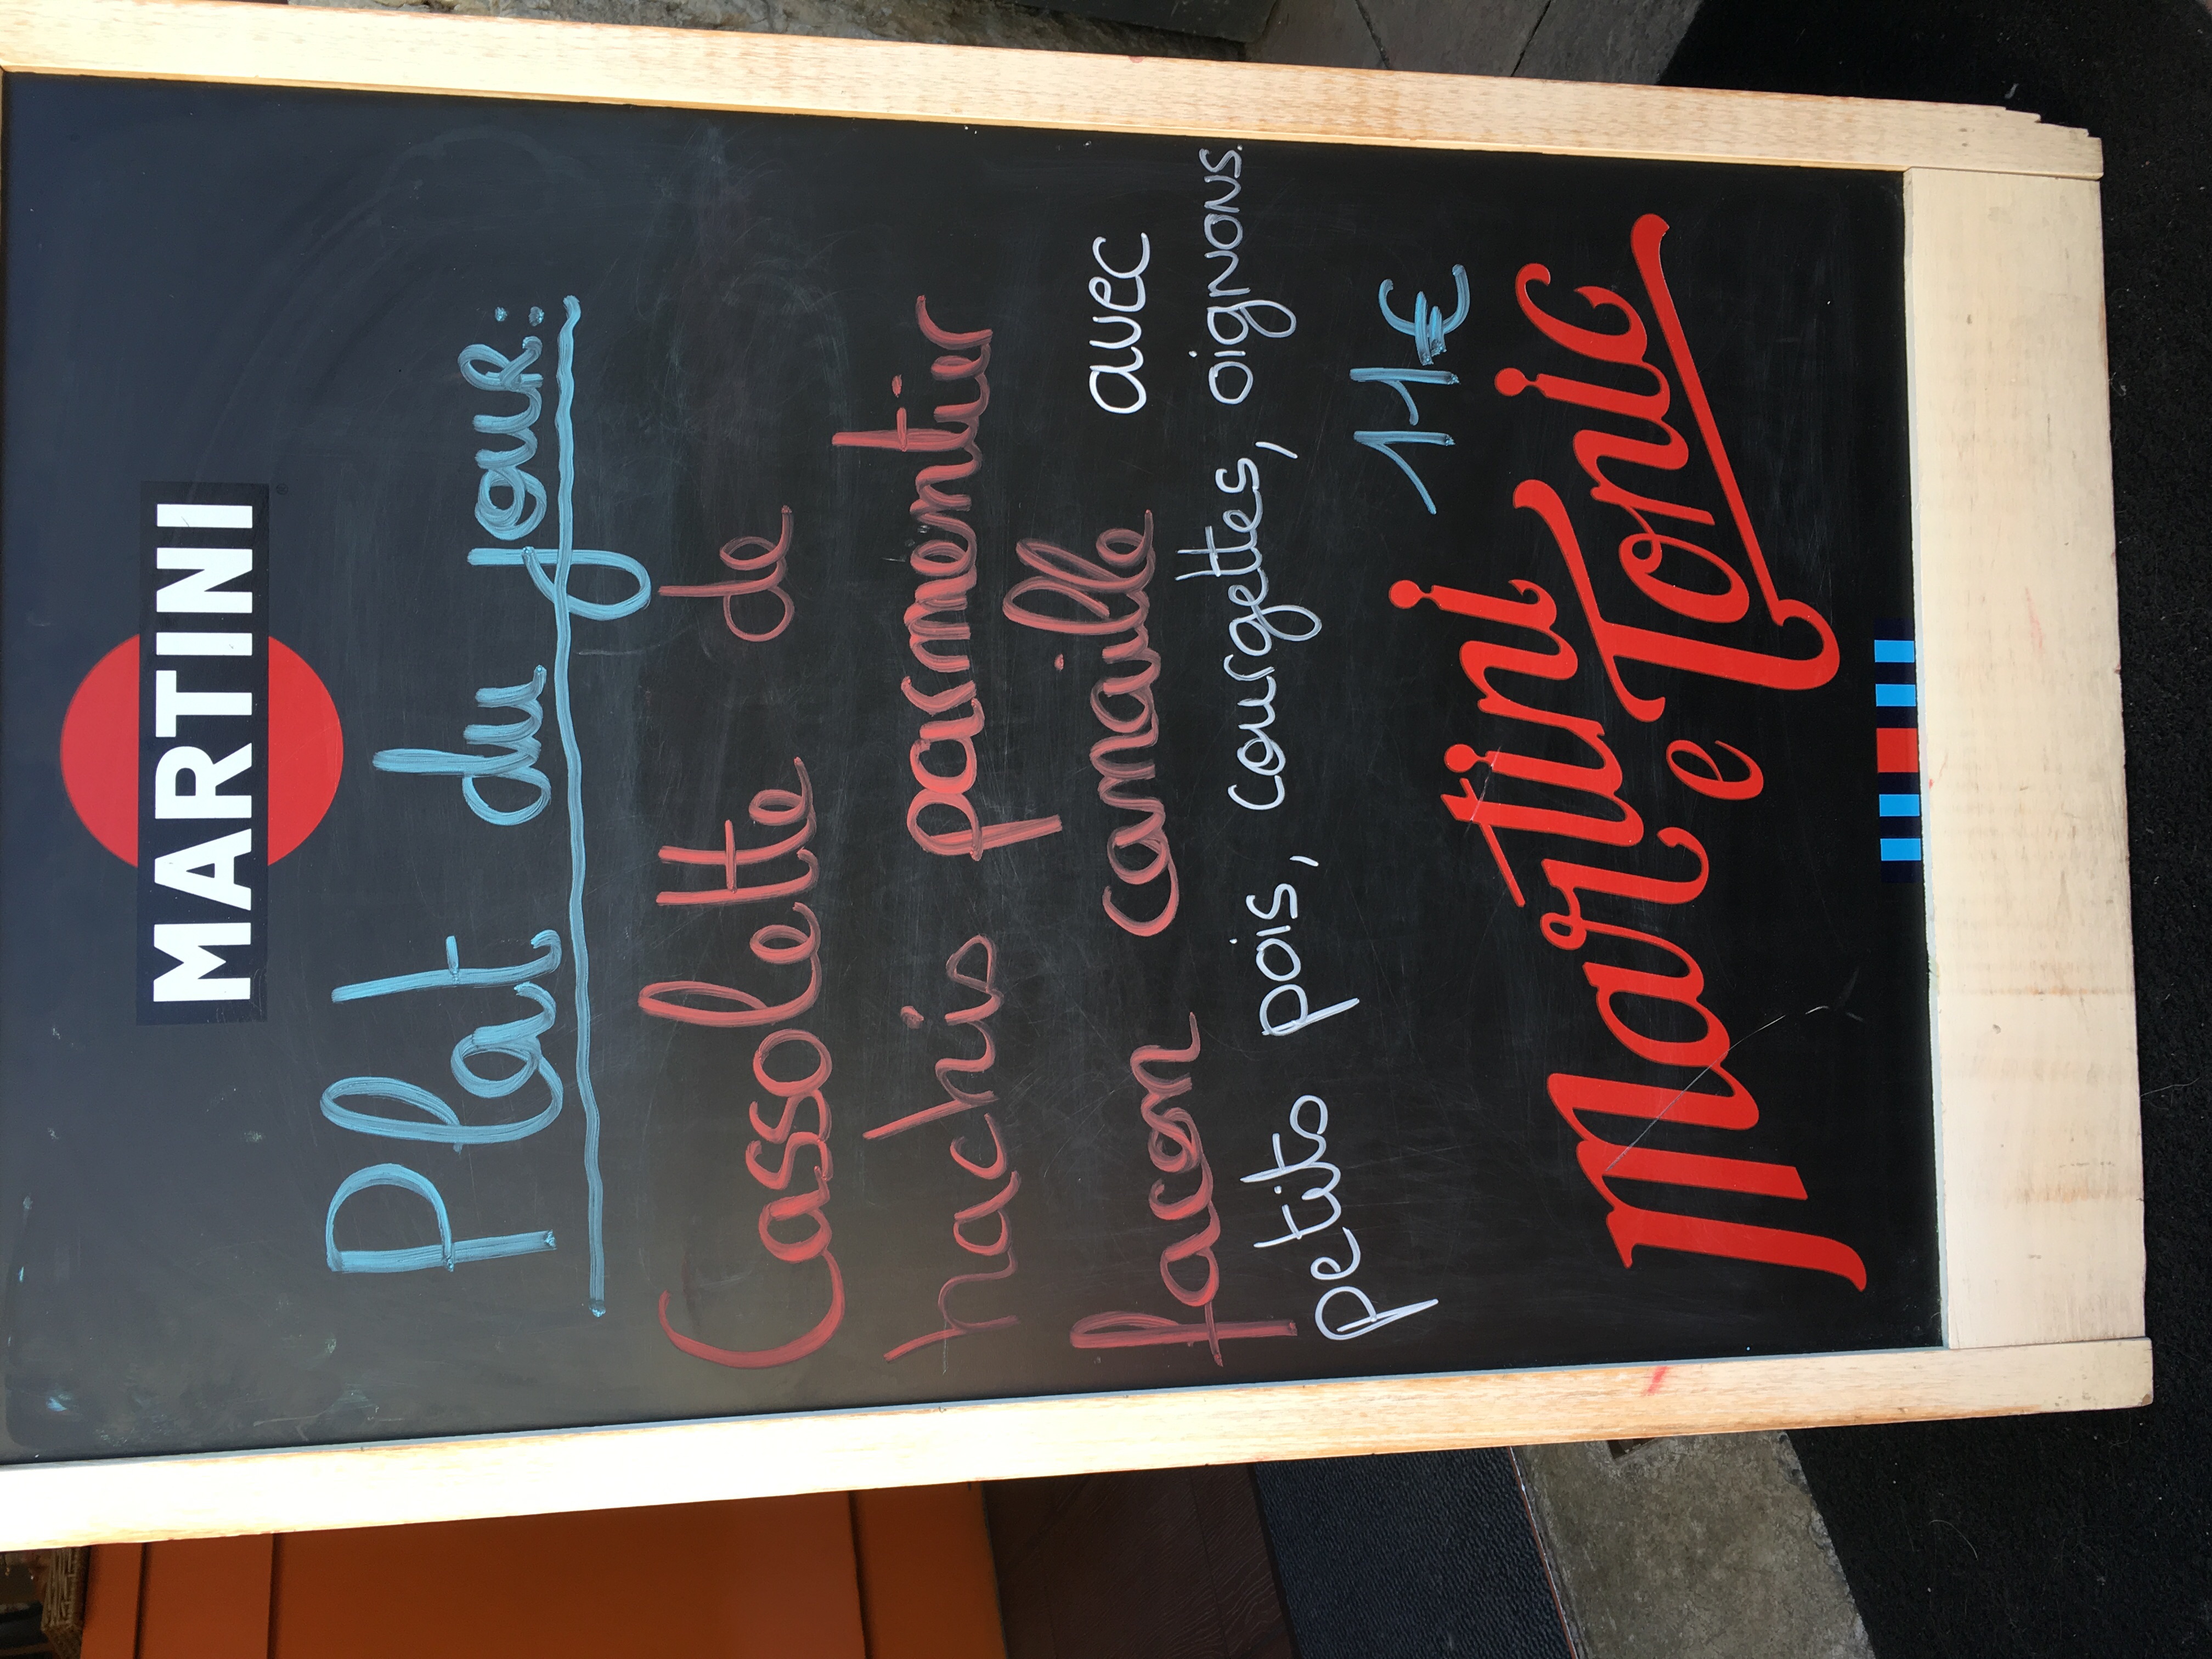 MARTINI
Plat du jour:
Cassolette de
hachis parmentier
façon canaille avec
petits pois, courgettes, oignons.
11€
Martini
e Tonic